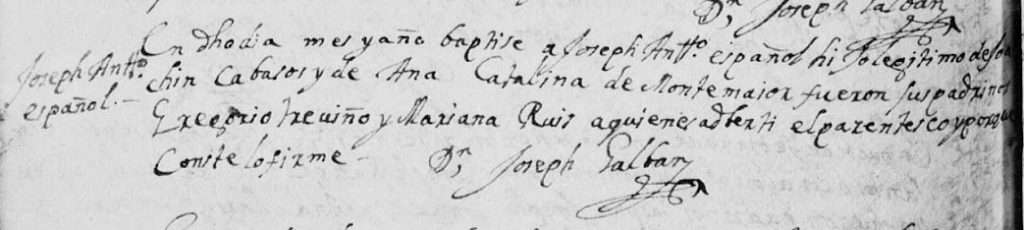 Dn Joseph Galban
Joseph Antto.
español.
En dho dia mes y año baptise a Joseph Antto. español hijo legitimo de Joa
chin Cabasos y de Ana Catalina de Montemaior fueron sus padrinos
Gregorio treviño y Mariana Ruis a quienes adberti el parentesco y porque
Conste lo firme
Dn Joseph Galban